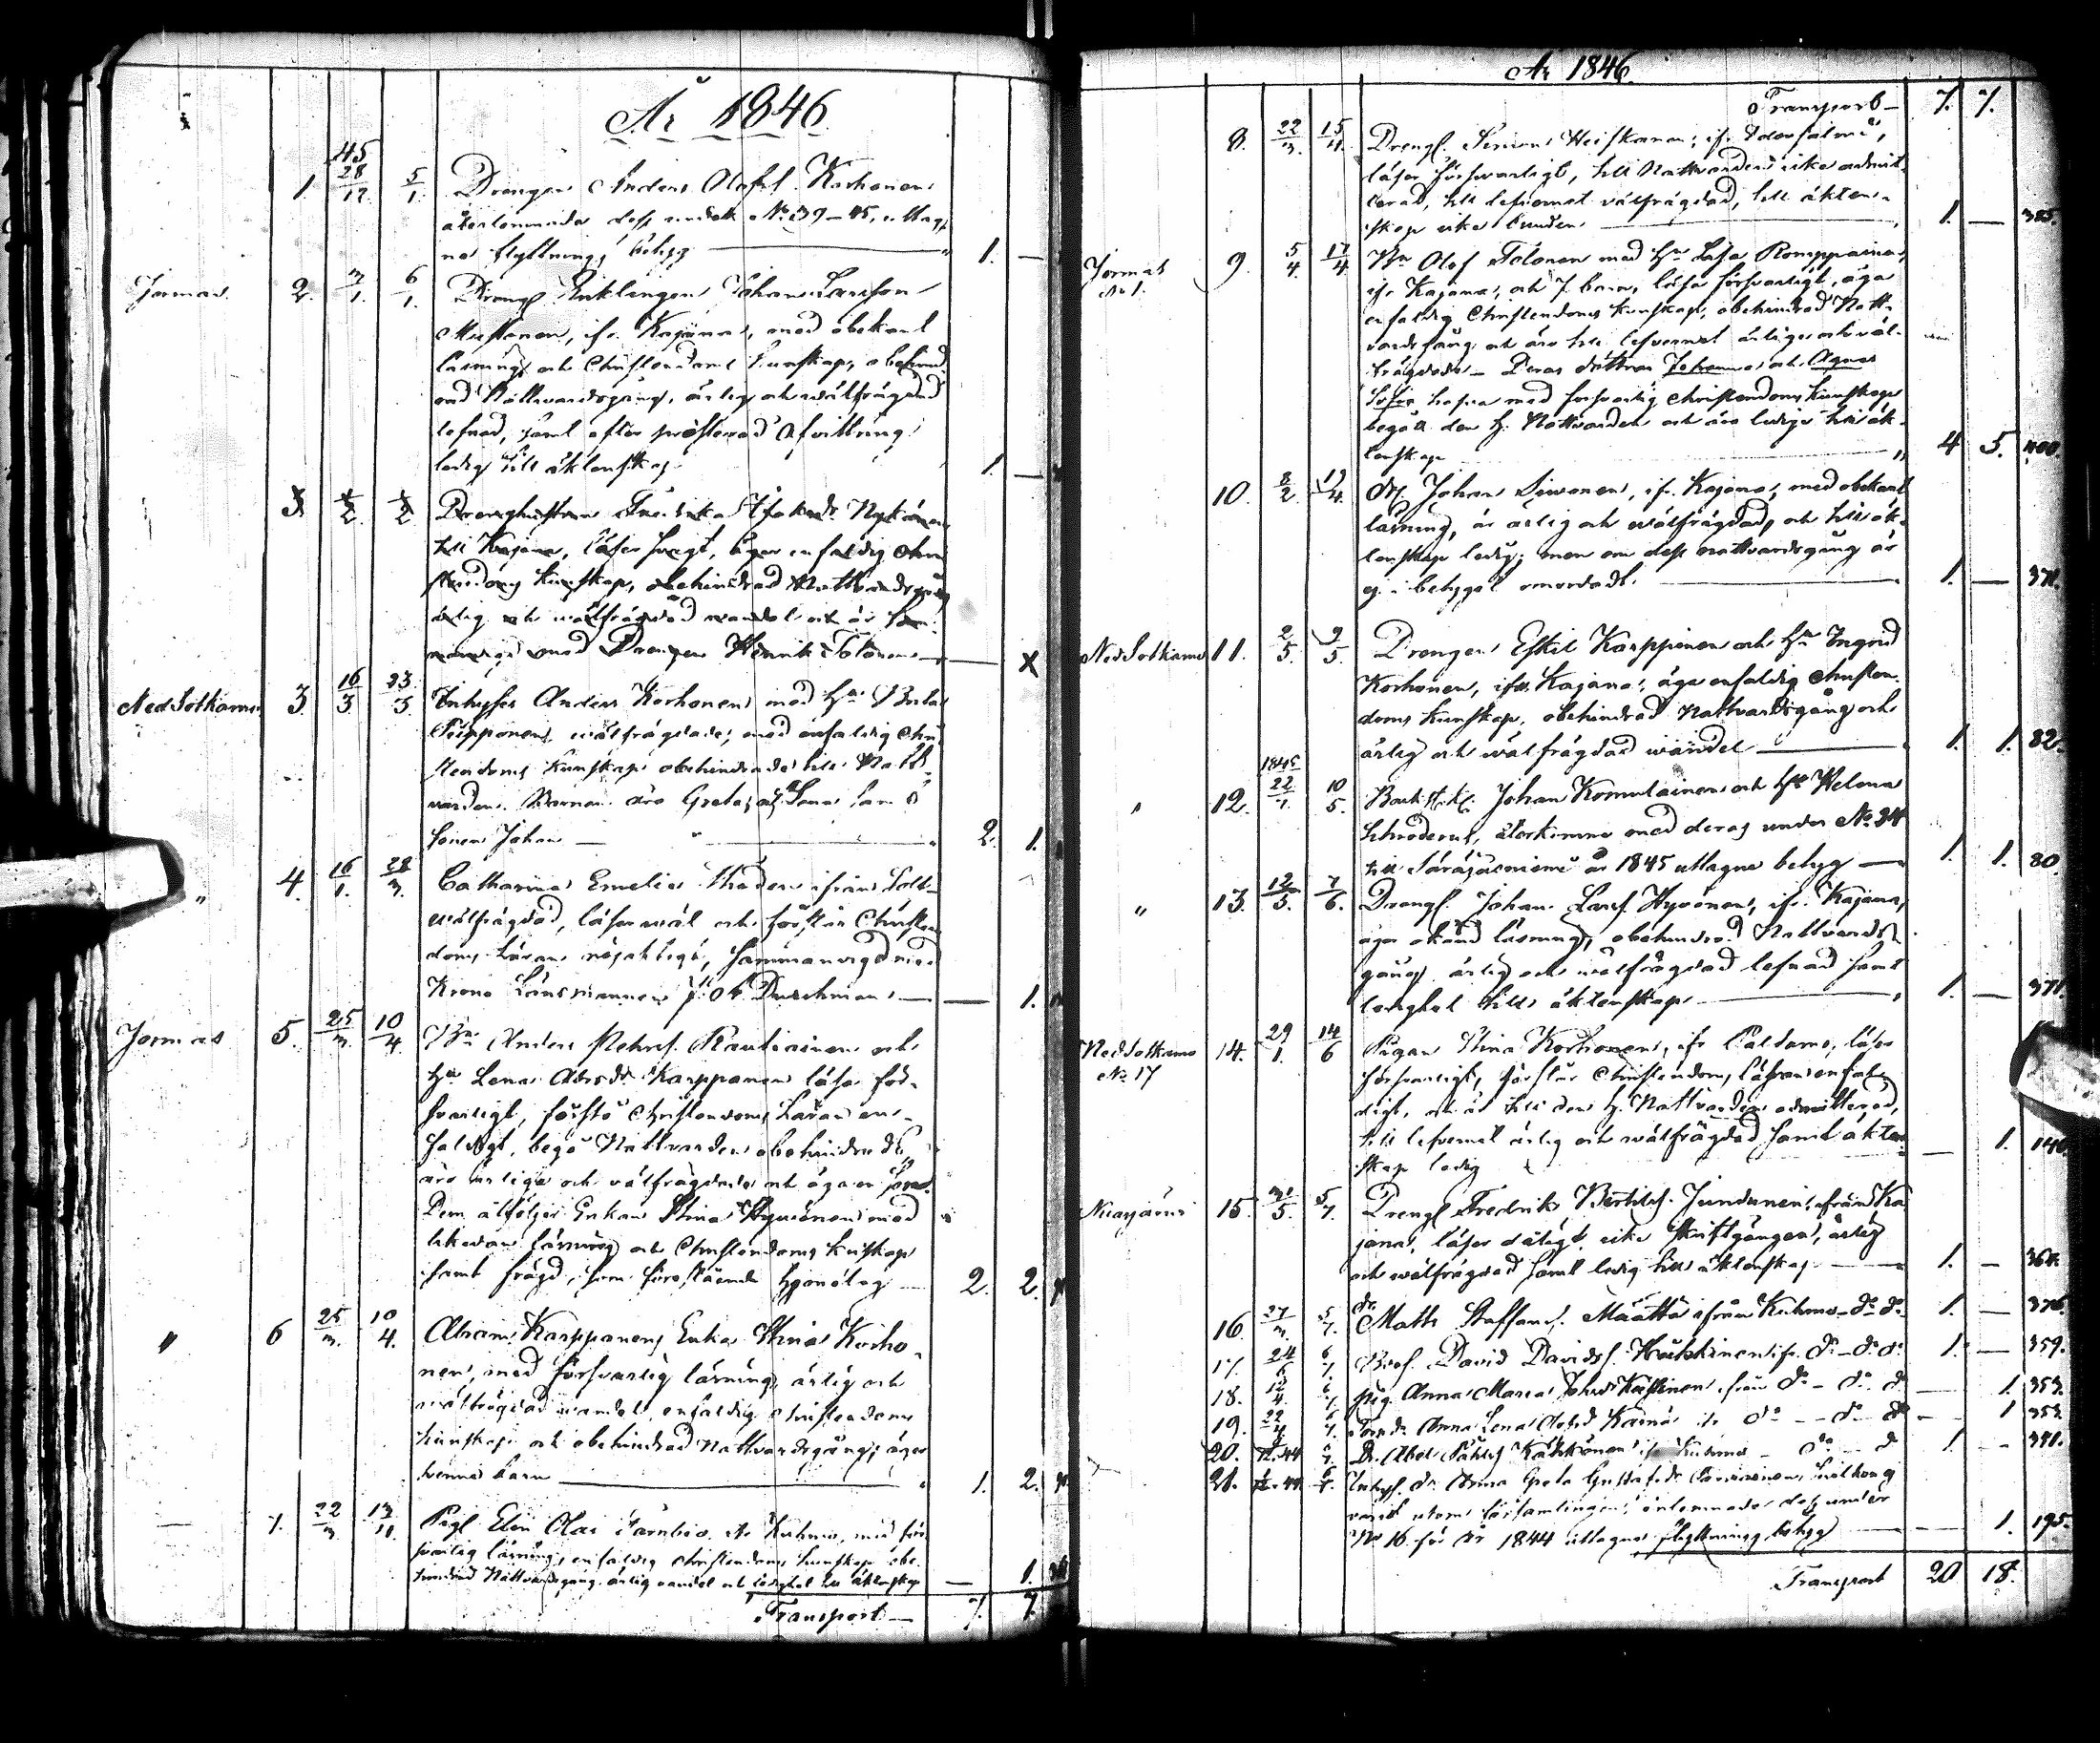 År 1846
45
1. 28/12. 5/1. Drengen Anders Olofsf. Korhonen
återlemnade dess under No 39-45, uttag-
na flyttnings betyg 1. —
Jormas 2. 3/1. 6/1. Drengf Enklingen Johan Larsson
Mustonen, ifr. Kajana, med obekant
läsning och Christendoms kunskap, obehind-
rad Nattvardsgång, ärlig och wälfrägdad
lefnad, samt efter presterad afvittring
ledig till äktenskap. 1. —
3 2 2 Drenghustrun Isaksdr. Nykänen
till Kajana, läser svagt, äger enfaldig Chri-
stendoms kunskap, obehindrad Nattvardsgång
ärlig och wälfrägdad wandel och är sam-
manvigd med Drengen Henrik Tolonen — X
Ned Sotkamo 3. 16/3. 23/3. Inhyses Anders Korhonen med Hu
Piipponen, wälfrägdade, med enfaldig Chri-
stendoms kunskap obehindrade till Natt-
varden. Barnen äro Greta, Lena samt
Sonen Johan — 2. 1.
" 4. 16/1. 28/3. Catharina Emelia ifrån
wälfrägdad, läser wäl och förstår Christen-
doms Läran nöjaktigt, sammanvigd med
Krono Länsmannen — — 1.
Jormas 5. 25/3. 10/4. Bn Anders Pehrsf. Rautiainen och
Hu Lena Adrsdr Karppanen läsa för-
svarligt, förstå Christendoms Läran en-
faldigt, begå Nattvarden obehindrade,
äro ärliga och välfrägdade och äga en son.
Dem åtföljer Enkan Stina Hyvönen med
likadan läsning och Christendoms kunskap
samt frägd, som förestående Hjonelag 2. 2.
" 6 25/3. 10/4. Abram Karppanens Enka Stina Korho-
nen, med försvarlig läsning, ärlig och
wälfrägdad wandel, enfaldig Christendoms
kunskap och obehindrad Nattvardsgång; äger
tvenne barn — 1. 2.
— 7. 22/3 13/4 Pigf. Elin Olai ifr Kuhmo, med för-
svarlig läsning, enfaldig Christendoms kunskap obe-
hindrad Nattvardsgång, ärlig vandel och ledighet till äktenskap — 1.
Transport — 7. 7.
År 1846.
Transport — 7. 7.
8. 22/3. 15/4. Drengf. Simon Heiskanen, ifr. Idensalmi,
läser försvarligt, till Nattvarden icke admit-
terad, till lefvernet välfrägdad, till äkten-
skap icke bunden — 1. — 385.
Jormas No 1. 9. 5/4. 17/4. Bn Olof Tolonen med Hu Lisa Romppainen,
ifr Kajana, och 7 barn, läsa försvarligt, äga
enfaldig Christendoms kunskap, obehindrad Natt-
vardsgång och äro till lefvernet ärliga och väl-
frägdade — Deras döttrar Johanna och Agnes
Sofia hafva med försvarlig Christendoms kunskap
begått den H. Nattvarden och äro lediga till äk-
tenskap — 4 5. 400.
10. 8/2. 19/4. Dr. Johan Siwonen, ifr. Kajana, med obekant
läsning, är ärlig och wälfrägdad, och till äk-
tenskap ledig; men om dess nattvardsgång är
ej i betyget omordadt. — 1. — 371.
Ned Sotkamo 11. 2/5. 9/5. Drengen Eskil Karppinen och Hu Ingrid
Korhonen, ifrån Kajana, äga enfaldig Christen-
doms kunskap, obehindrad Nattvardsgång och
ärlig och wälfrägdad wandel — 1. 1. 82.
1845
" 12. 22/1. 10/5. Johan Komulainen och Hu Helena
Schroderus, återkomne med deras under No 24
till Säräisniemi år 1845 uttagne betyg — 1. 1. 80.
" 13. 12/5. 7/6. Drengf. Johan Larsf. Hyvönen, ifr. Kajana,
äger okänd läsning, obehindrad Nattvards-
gång, ärlig och wälfrägdad lefnad samt
ledighet till äktenskap — 1. — 371.
Ned Sotkamo No 17 14. 29/1. 14/6 Pigan Stina Korhonen, ifr Paldamo, läser
försvarligt, förstår Christendoms läran enfal-
digt, och är till den H. Nattvarden admitterad,
till lefvernet ärlig och wälfrägdad samt äkten-
skap ledig — 1. 140.
Nuasjärvi 15. 31/5. 5/7. Drengf Fredrik Bertilsf. Jundunen, från Ka-
jana, läser dåligt, icke skriftgången, ärlig
och wälfrägdad samt ledig till äktenskap — 1. — 364.
16. 27/3. 5/7. dr. Matts Staffansf. Määttä ifrån Kuhmo — do do 1. — 376.
17. 24/6 6/7 David Davidsf. Heikkinen ifr. do — do do 1. — 359.
18. 12/4. 6/7 Pig. Anna Maria Johsdr ifrån do — do. do — 1. 353.
19. 22/4 6/7. Anna Lena ifr do — do do — 1 353.
20. 44 6/7. Dr. Abel Kähkönen ifr Kuhmo — do — do 1. — 391.
21. 44 6/7. Inhysf. Anna Greta Gustafsdr
varit utom församlingen, återlemnade dess under
No 16. för År 1844 uttagna flyttnings betyg — 1. 195.
Transport 20 18.